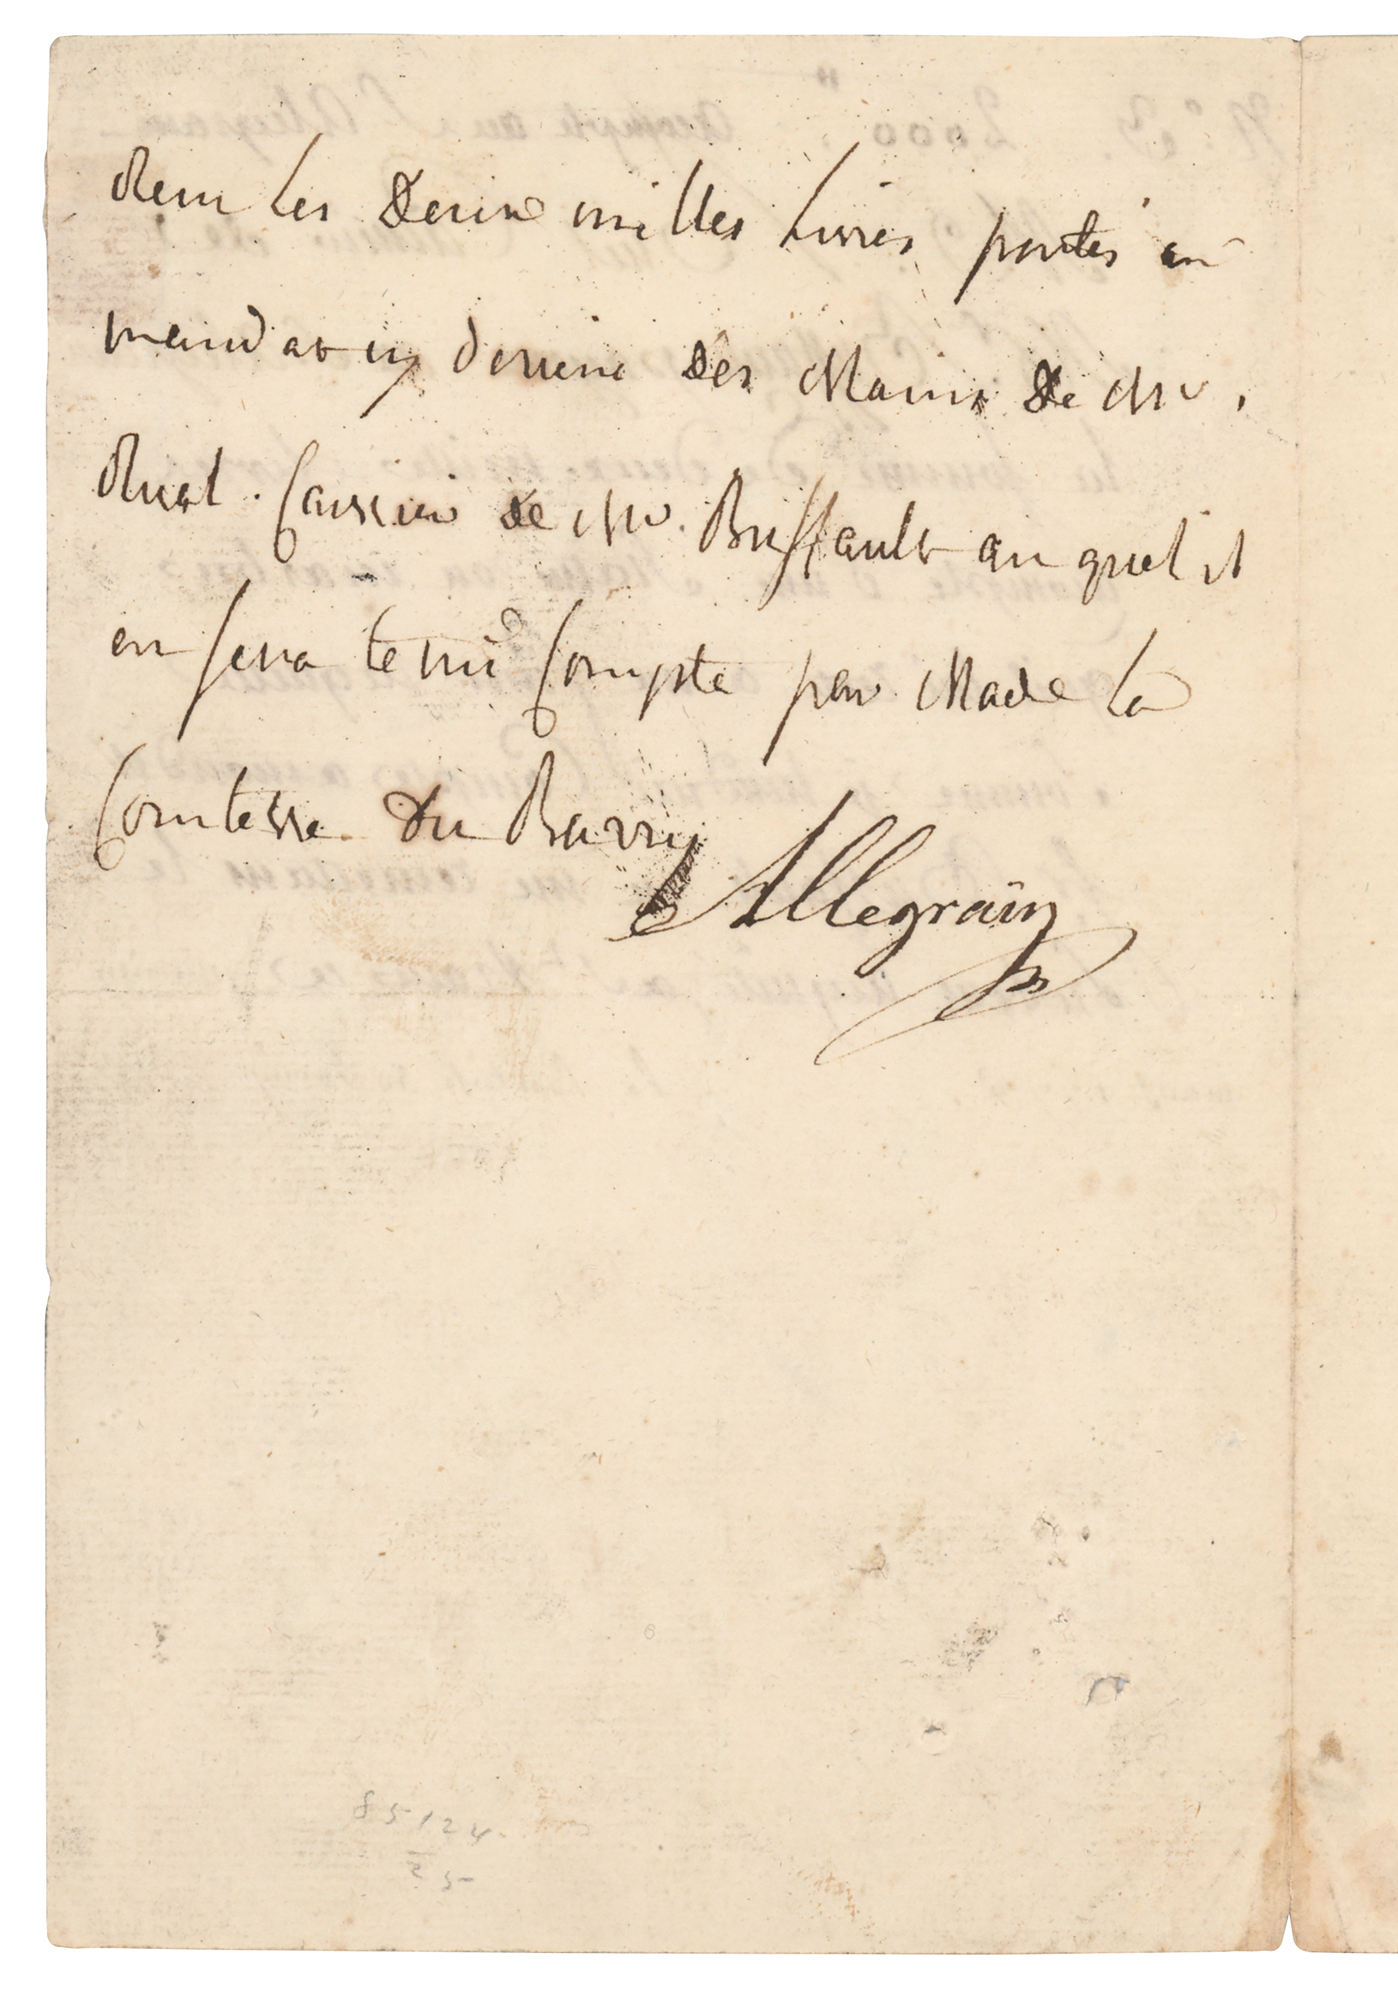 Reçu les deux milles Livres portés au
mandat cy derriere des Mains de Mr.
Ruel. Caissier de Mr. Buffault auquel il
en sera tenu Compte par Made la
Comtesse Du Barry
Allegrain
85124
25